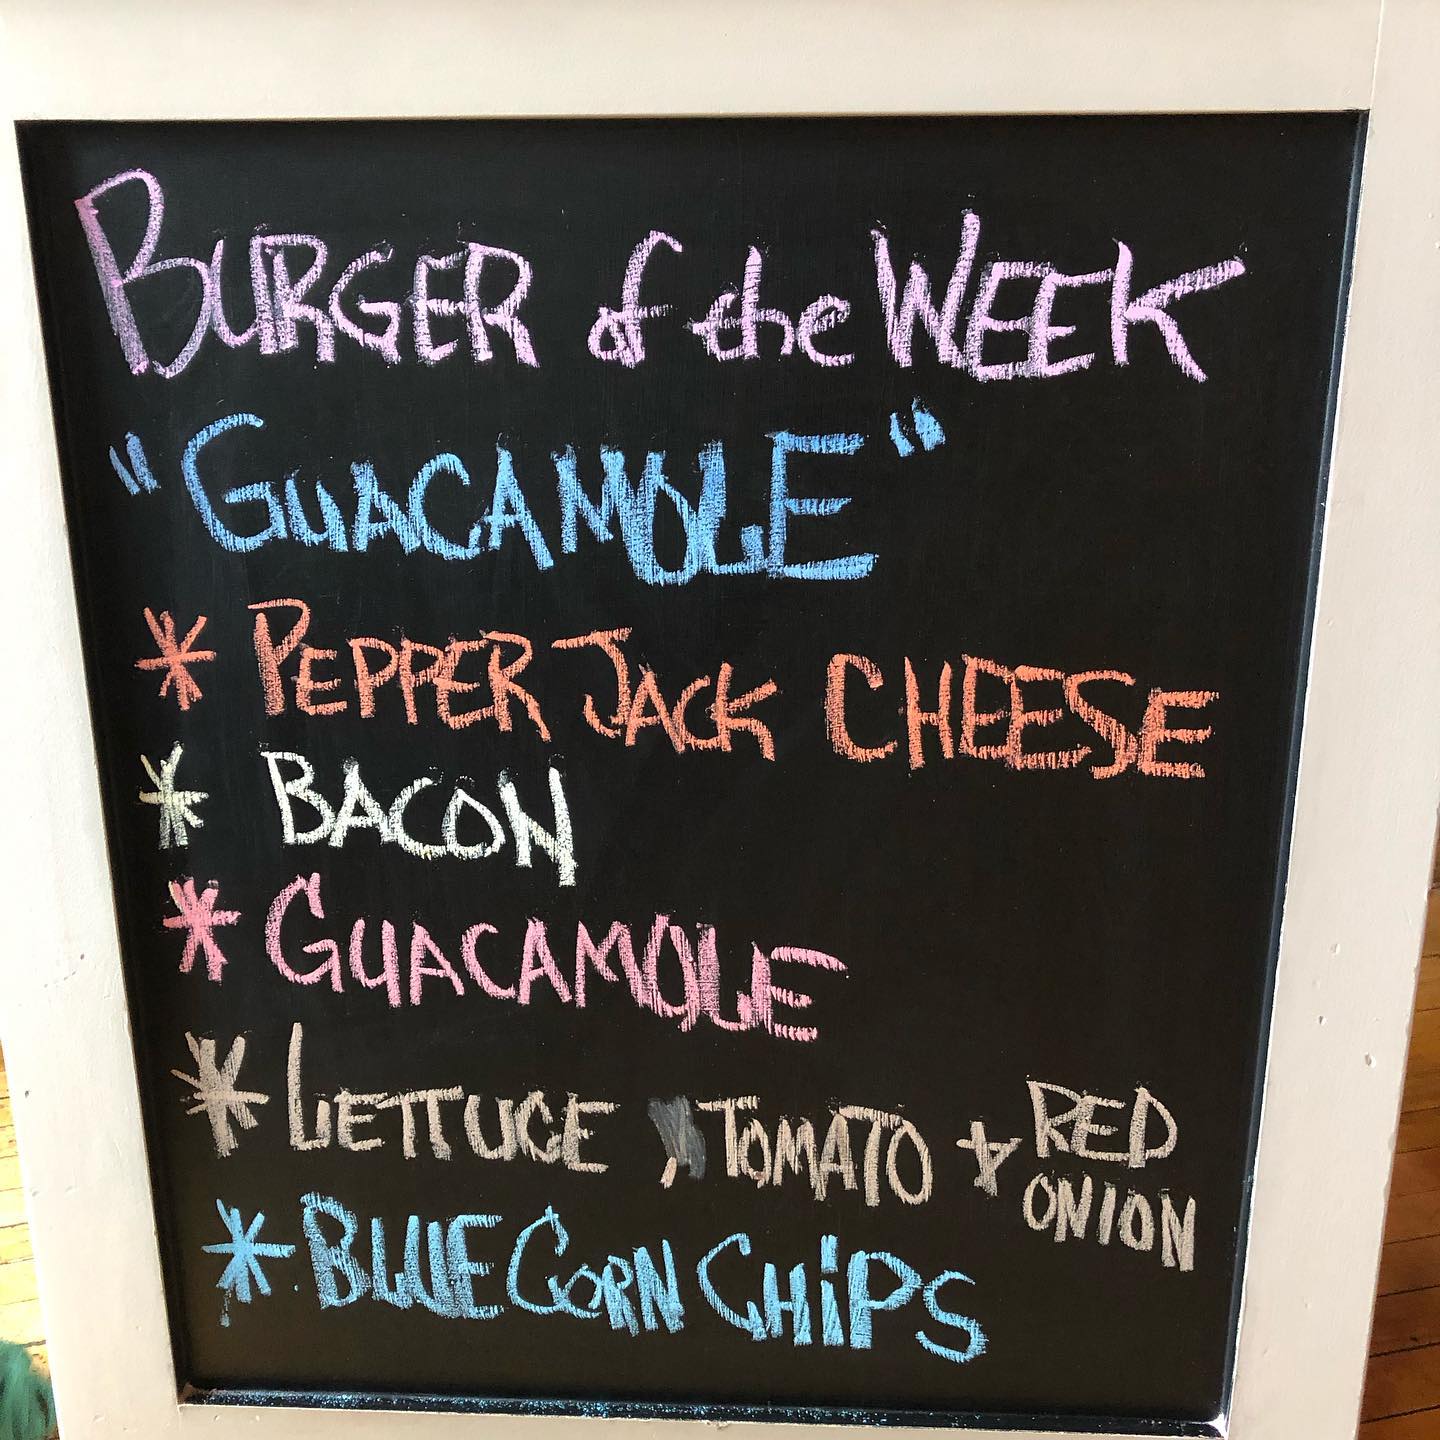 BURGER of the WEEK
"GUACAMOLE"
* PEPPER JACK CHEESE
* BACON
* GUACAMOLE
* LETTUCE, TOMATO + RED ONION
* BLUE CORN CHiPS